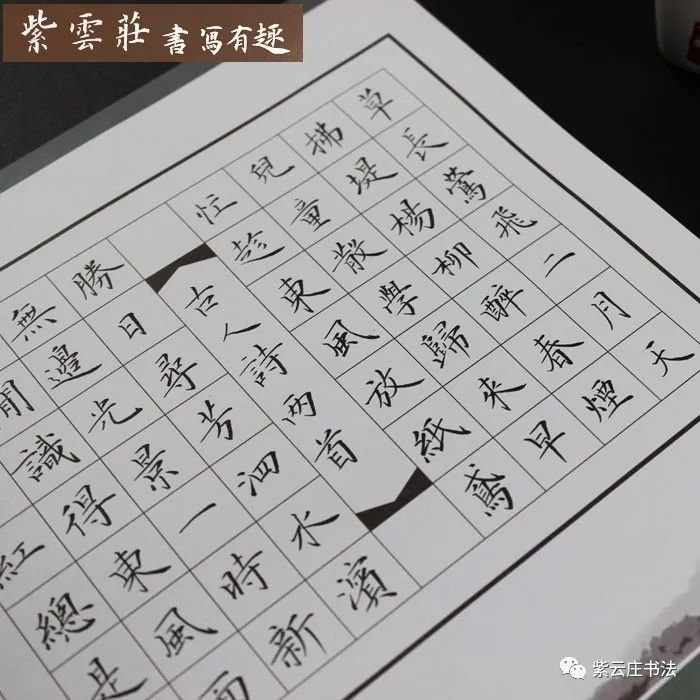 紫雲莊書寫有趣
草長鶯飛二月天
拂堤楊柳醉春煙
兒童散學歸来早
忙趁東風放紙鳶
古人詩两首
勝日尋芳泗水濱
無邊光景一時新
識得東風
紅總是
紫云庄书法